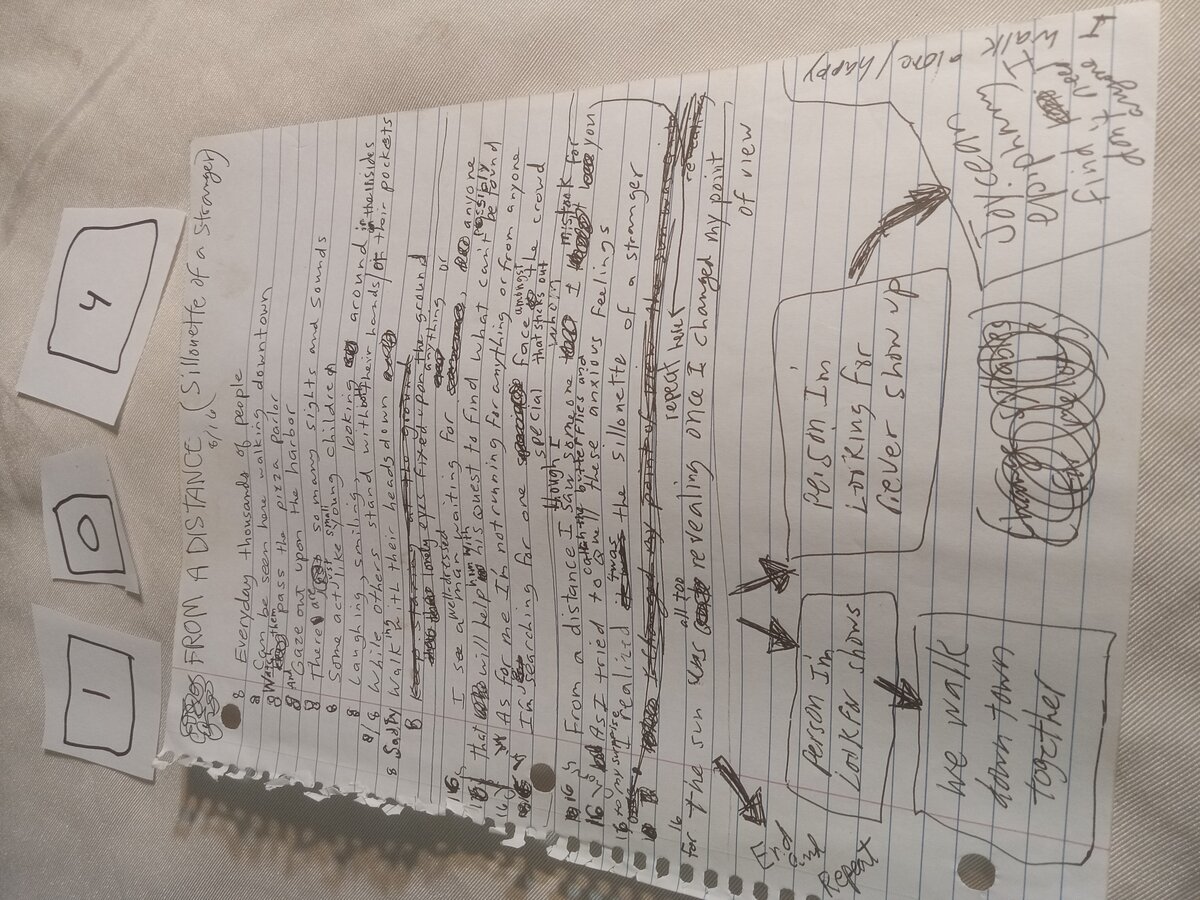 1
0
4
FROM A DISTANCE (Sillouette of a Stranger)
8/16
8 Everyday thousands of people
8 Can be seen here walking downtown
8 Watch them pass the pizza parlor
8 And Gaze out upon the harbor
8 There are so many sights and sounds
8 Some act just like small young children
8 Laughing, smiling, looking around
8 While others stand with their hands in the insides of their pockets
8 Sadly walking with their heads down
8 lonely eyes fixed upon the ground
16 I see a well-dressed man waiting for anything or anyone
that will help him with his quest to find what can't possibly be found
16 As for me I'm not running for anything or from anyone
I'm searching for one special face amongst the crowd that sticks out
16 From a distance I though I saw someone whom I mistook for you
16 As I tried to catch the butterflies and quell these anxious feelings
16 to my surprise I realized it was the sillouette of a stranger
repeat line
16 for the sun was all too revealing once I changed my point of view
Ending
Person I'm Look for shows
we walk down town together
Person I'm Looking for Never show up
Change Numbers for melody
Joycean epiphany I find I don't need anyone
I walk alone/happy